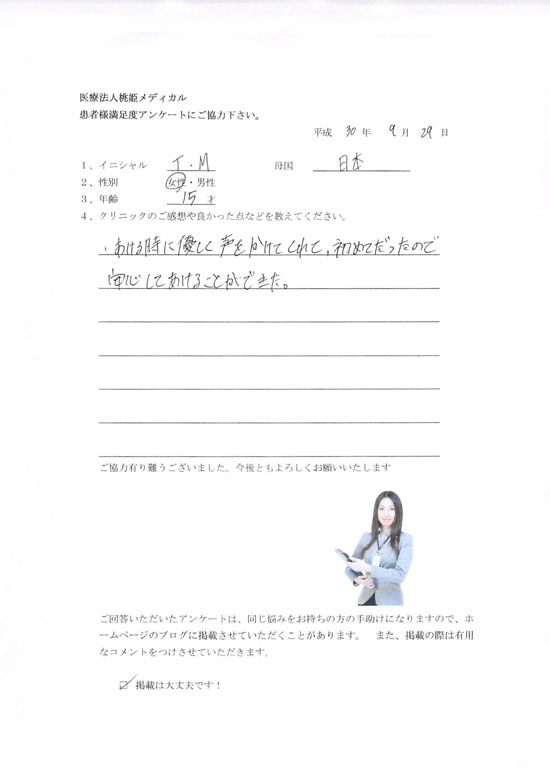 医療法人桃姫メディカル
患者様満足度アンケートにご協力下さい。
平成 30 年 9 月 29 日
1、イニシャル T.M 母国 日本
2、性別 女性・男性
3、年齢 15 才
4、クリニックのご感想や良かった点などを教えてください。
・あける時に優しく声をかけてくれて、初めてだったので
安心してあけることができた。
ご協力有り難うございました。今後ともよろしくお願いいたします
ご回答いただいたアンケートは、同じ悩みをお持ちの方の手助けになりますので、ホ
ームページのブログに掲載させていただくことがあります。 また、掲載の際は有用
なコメントをつけさせていただきます。
☑ 掲載は大丈夫です！